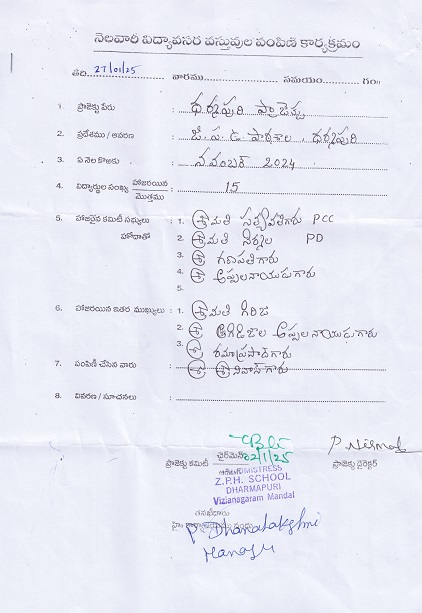 నెలవారీ విద్యావసర వస్తువుల పంపిణి కార్యక్రమం
తేది. 27/01/25 వారము సమయం గం॥
1. ప్రాజెక్టు పేరు : ధర్మపురి ప్రాజెక్టు
2. ప్రదేశము / ఆవరణ : జి.ప.ఉ పాఠశాల, ధర్మపురి
3. ఏ నెల కొఱకు : నవంబర్ 2024
4. విద్యార్థుల సంఖ్య హాజరయిన / మొత్తము : 15
5. హాజరైన కమిటీ సభ్యులు : 1. శ్రీమతి సత్యవతిగారు PCC
హోదాతో 2. శ్రీమతి నిర్మల PD
3. శ్రీ గణపతిగారు
4. శ్రీ అప్పలనాయుడుగారు
5.
6. హాజరయిన ఇతర ముఖ్యులు : 1. శ్రీమతి గిరిజ
2. శ్రీ అప్పలనాయుడుగారు
3. శ్రీ రమాప్రసాద్ గారు
7. పంపిణీ చేసిన వారు : శ్రీ శ్రీనివాస్ గారు
8. వివరణ / సూచనలు :
02/1/25 P. Nirmala
ప్రాజెక్టు కమిటీ ఛైర్‌మెన్ ప్రాజెక్టు డైరెక్టర్
Z.P.H. SCHOOL
DHARMAPURI
Vizianagaram Mandal
P. Dhanalakshmi